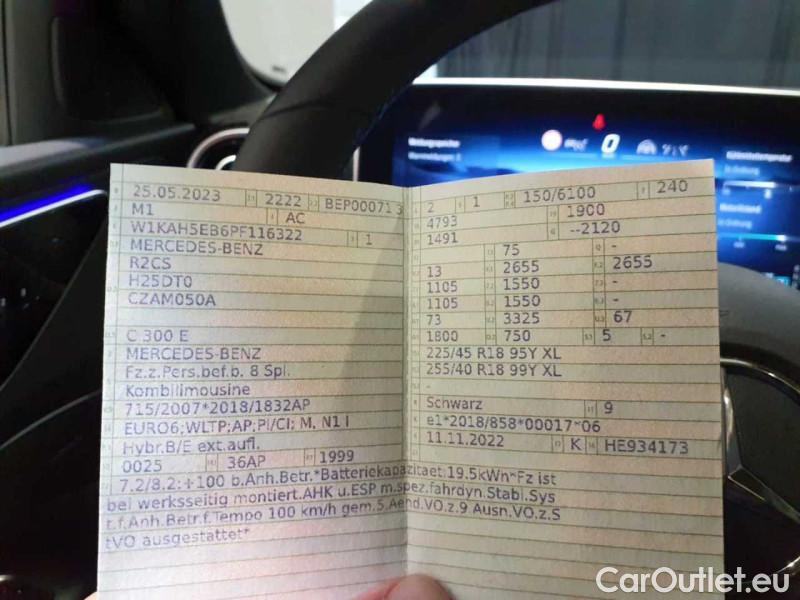 25.05.2023 2222 BEP00071 3
M1 AC
W1KAH5EB6PF116322 1
MERCEDES-BENZ
R2CS
H25DT0
CZAM050A
C 300 E
MERCEDES-BENZ
Fz.z.Pers.bef.b. 8 Spl.
Kombilimousine
715/2007*2018/1832AP
EURO6;WLTP;AP;PI/CI; M, N1 I
Hybr.B/E ext.aufl.
0025 36AP 1999
2 1 150/6100 240
4793 1900
1491 --2120
75 -
13 2655 2655
1105 1550 -
1105 1550 -
73 3325 67
1800 750 5 -
225/45 R18 95Y XL
255/40 R18 99Y XL
-
Schwarz 9
e1*2018/858*00017~06
11.11.2022 K HE934173
7.2/8.2:+100 b.Anh.Betr.*Batteriekapazitaet:19.5kWh~Fz ist
bei werksseitig montiert.AHK u.ESP m.spez.fahrdyn.Stabl.Sys
t.f.Anh.Betr.f.Tempo 100 km/h gem.5.Aend.VO.z.9 Ausn.VO.z.S
tVO ausgestattet*
CarOutlet.eu